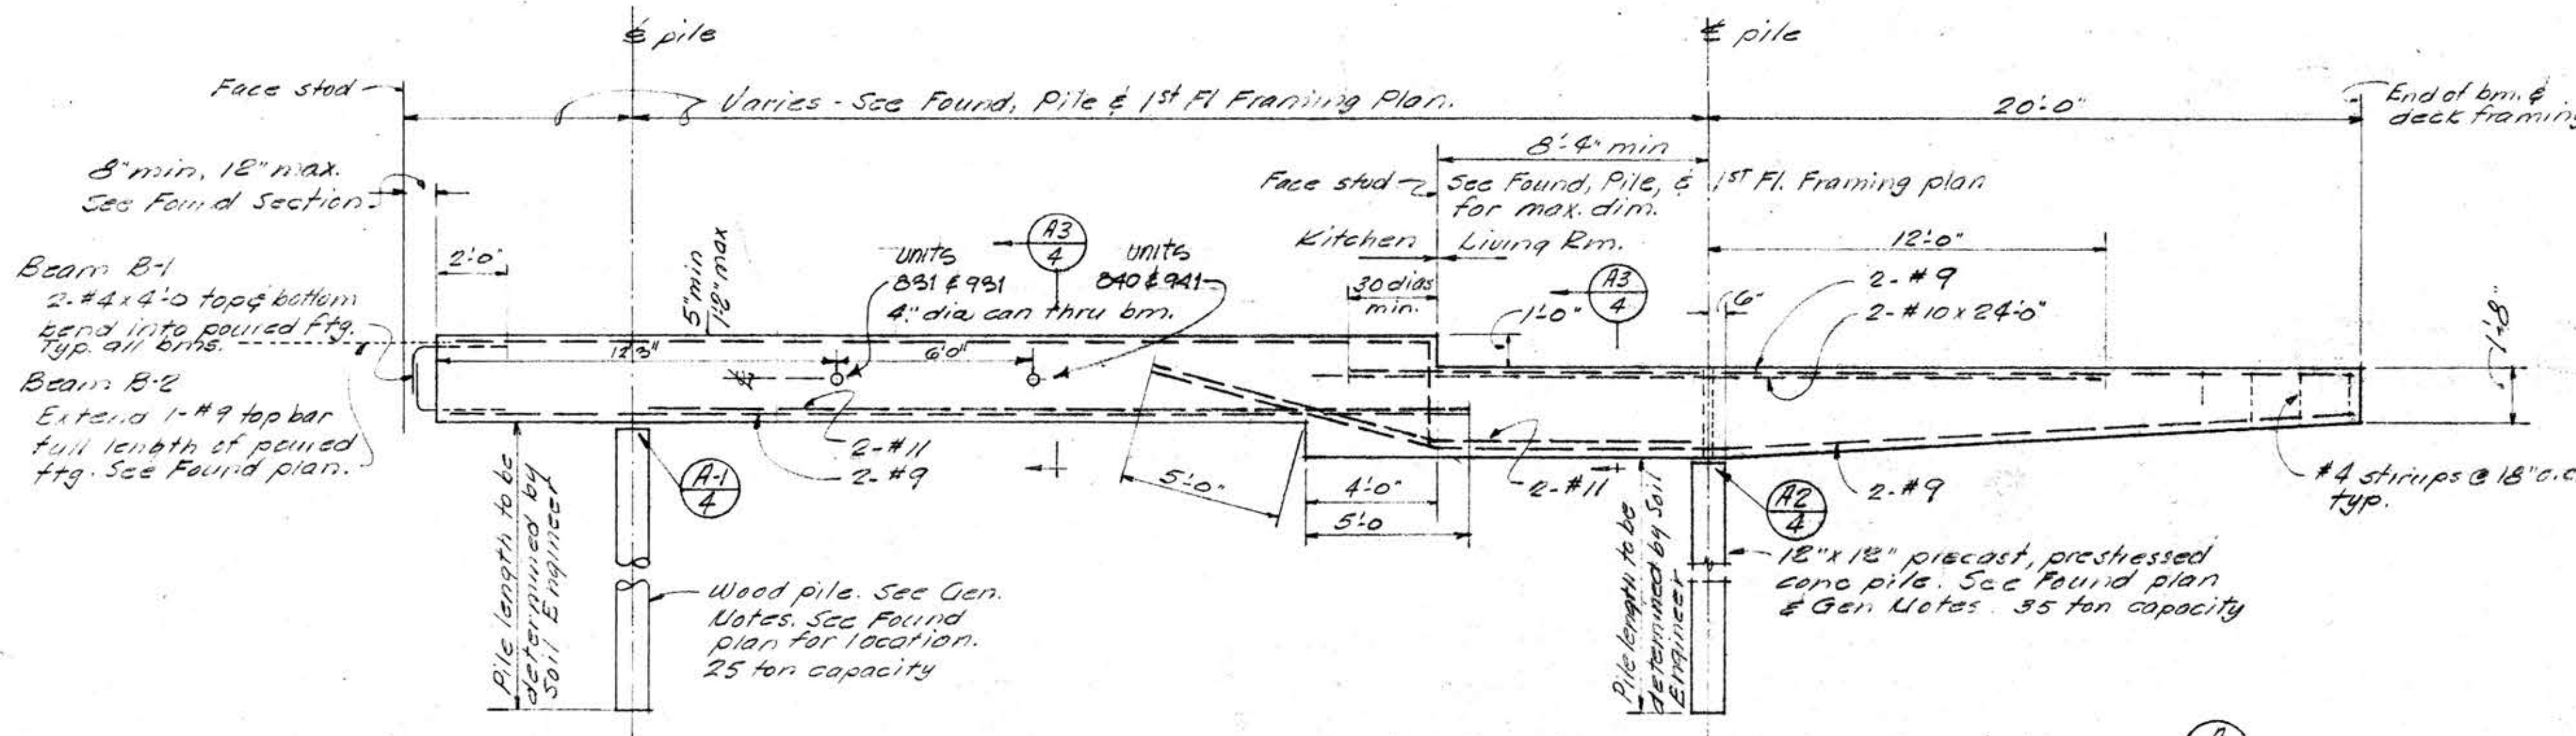 ℄ pile
℄ pile
Face stud
Varies - See Found, Pile & 1st Fl Framing Plan.
20'-0"
End of bm. &
deck framing
8" min, 12" max.
See Found Section.
8'-4" min
Face stud
See Found, Pile, & 1ST Fl. Framing plan
for max. dim.
Kitchen
Living Rm.
2'-0"
5" min
1'-2" max
units
831 & 931
A3
4
units
840 & 941
4" dia can thru bm.
30 dias
min.
1'-0"
A3
4
12'-0"
6"
2-#9
2-#10 x 24'-0"
1'-8"
Beam B-1
2-#4 x 4'-0 top & bottom
bend into poured ftg.
Typ. all bms.
Beam B-2
Extend 1-#9 top bar
full length of poured
ftg. See Found plan.
12'3"
6'0"
℄
2-#11
2-#9
A-1
4
5'-0"
4'-0"
5'-0
2-#11
A2
4
2-#9
#4 stirups @ 18" o.c.
typ.
Pile length to be
determined by
Soil Engineer
Wood pile. See Gen.
Notes. See Found
plan for location.
25 ton capacity
Pile length to be
determined by Soil
Engineer
12" x 12" precast, prestressed
conc pile. See Found plan
& Gen Notes. 35 ton capacity